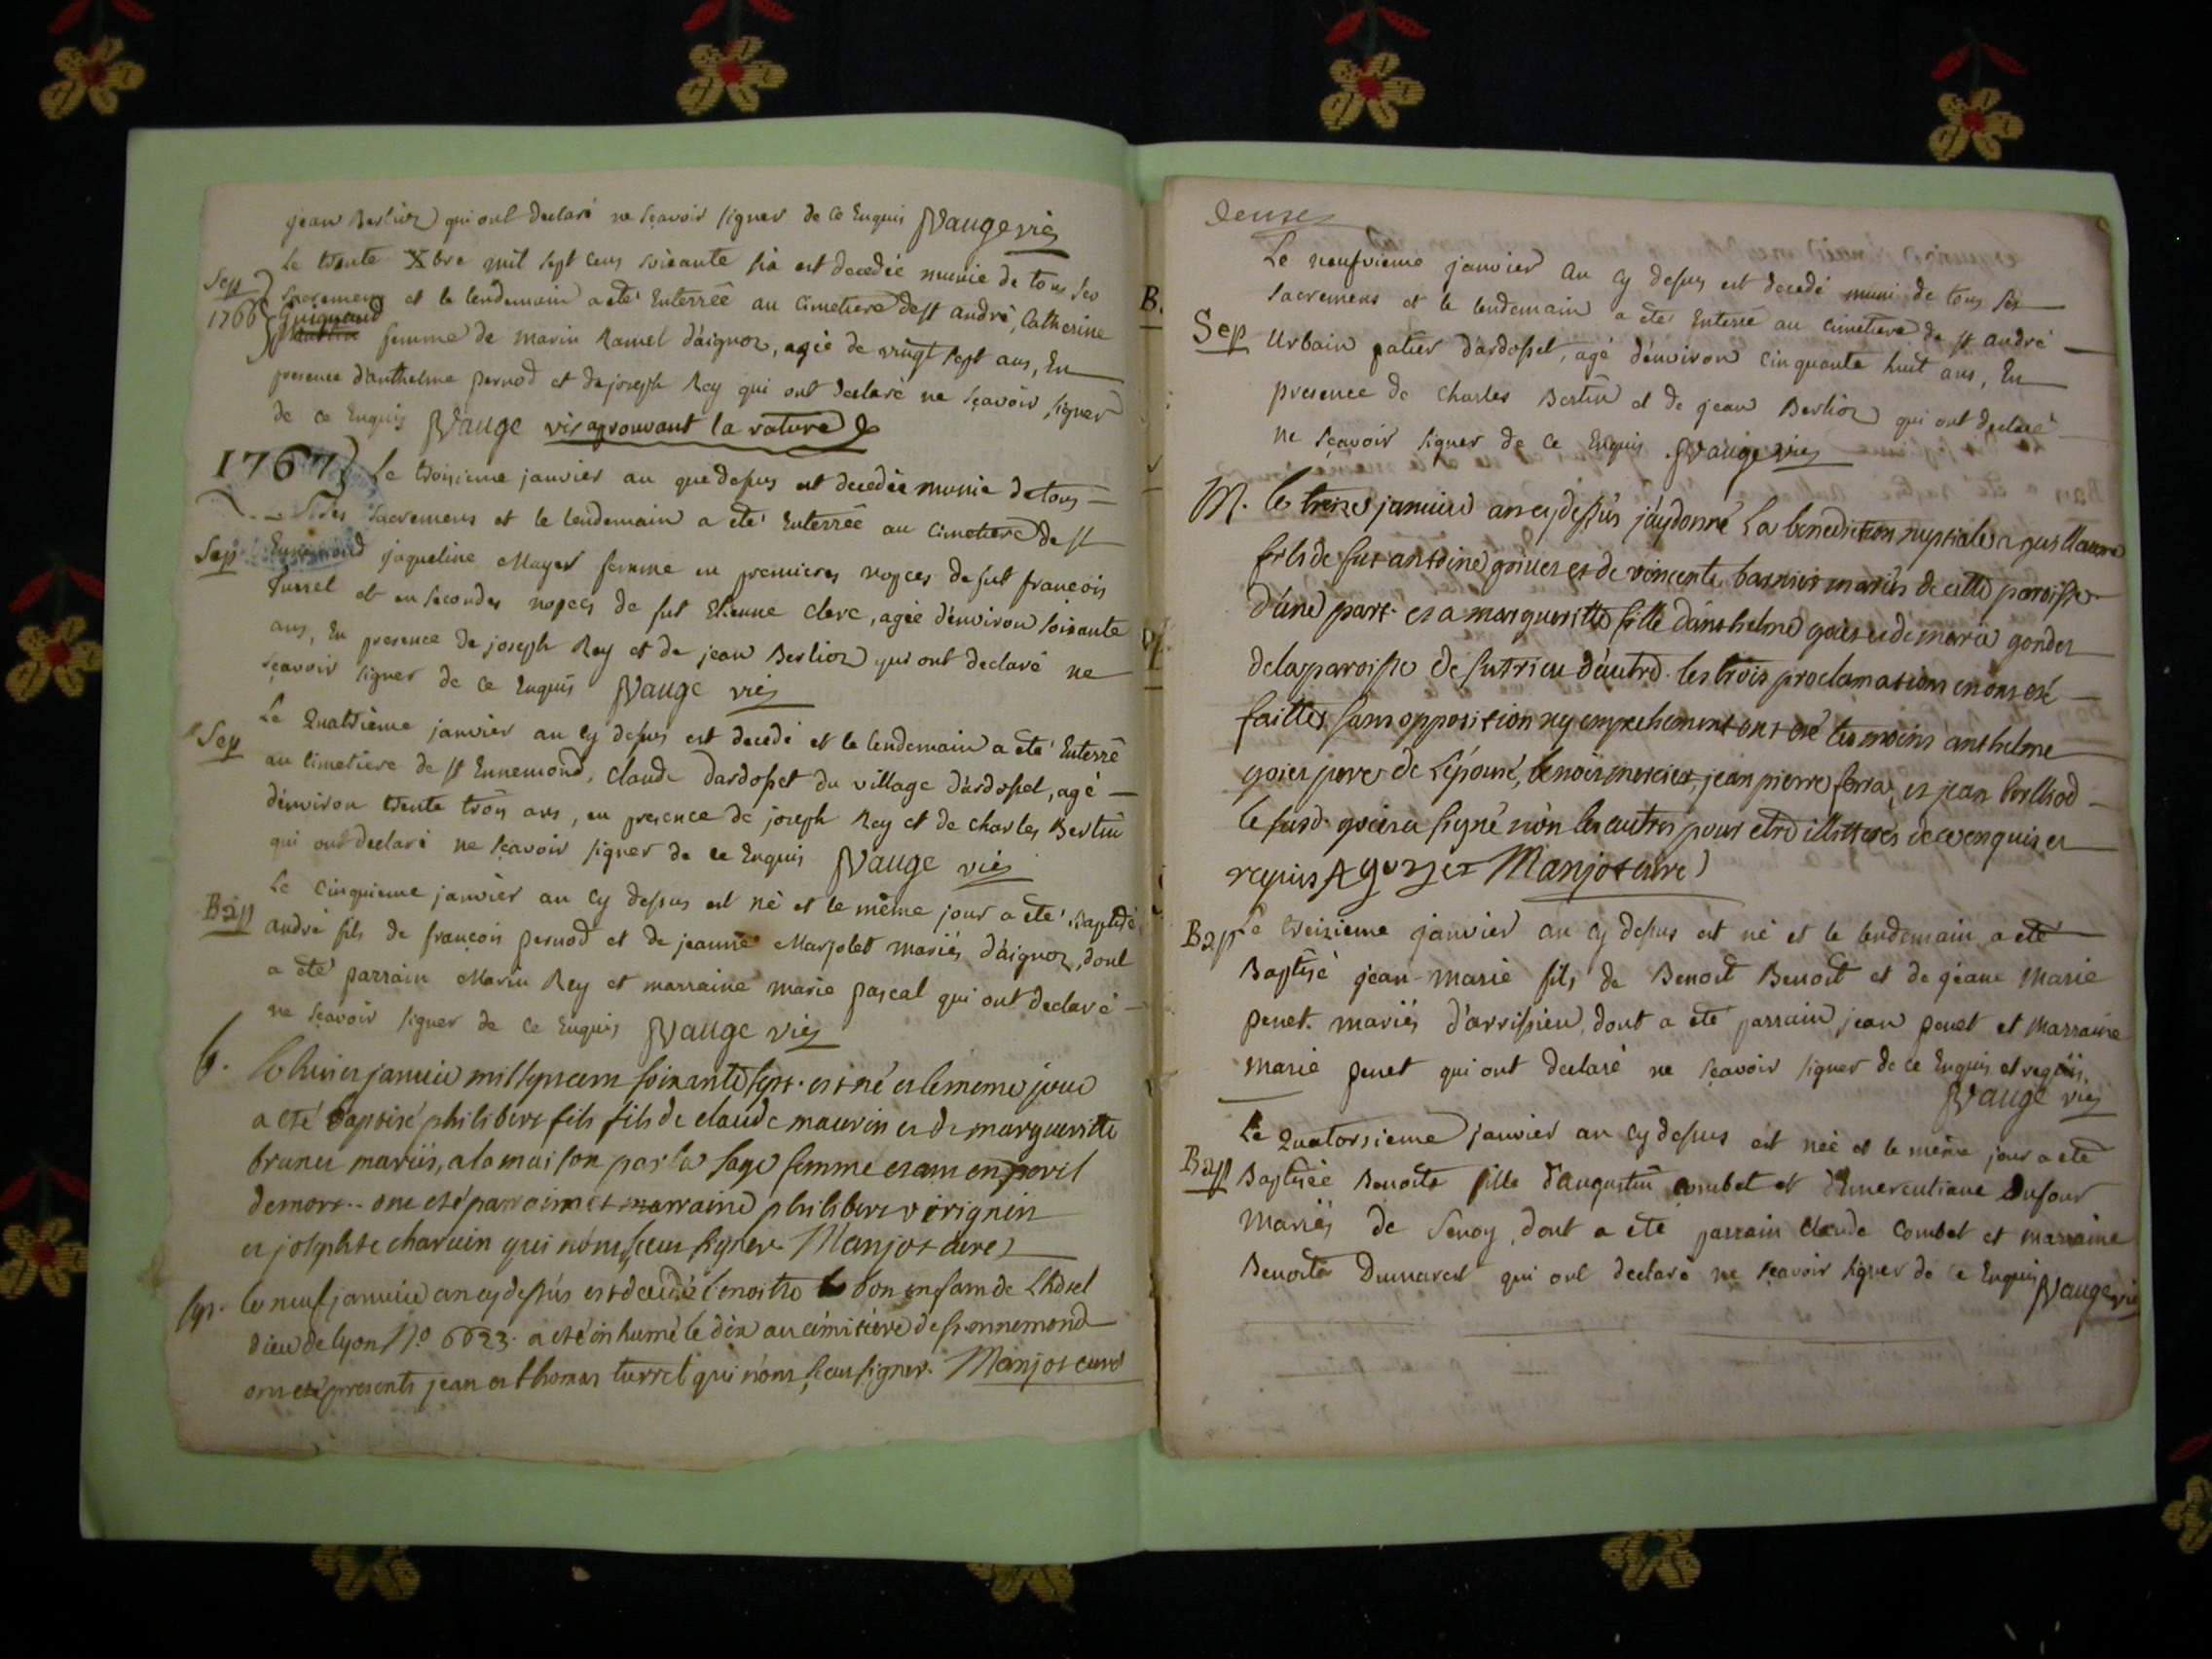 jean Berlioz qui ont declaré ne sçavoir signer de ce Enquis Vauge vic
Sep 1766
Le trente Xbre mil sept cens soixante six est decedée munie de tous ses
sacremens et le lendemain a été Enterrée au cimetiere de st andré, Catherine
Guignand femme de marin Ramel d'aignoz, agée de vingt sept ans, En
presence d'anthelme pernod et de joseph Rey qui ont declaré ne sçavoir signer
de ce Enquis Vauge vic aprouvant la rature
1767
Le troisieme janvier an que dessus est decedée munie de tous
Ses sacremens et le lendemain a été Enterrée au cimetiere de st
Sep
Ennemond jaqueline Mayer femme en premieres nopces de fut francois
Turrel et en secondes nopces de fut Etienne Clerc, agée d'environ soixante
ans, En presence de joseph Rey et de jean Berlioz qui ont declaré ne
sçavoir signer de ce Enquis Vauge vic
Sep
Le Quatrieme janvier an cy dessus est decedé et le lendemain a été Enterré
au cimetiere de st Ennemond, claude Dardosset du village d'ardosset, agé
d'environ trente trois ans, en presence de joseph Rey et de charles Bertin
qui ont declaré ne sçavoir signer de ce Enquis Vauge vic
Bap
Le cinquieme janvier an cy dessus est né et le même jour a été Baptisé
andré fils de françois pernod et de jeanne Marjolet mariés d'aignoz, dont
a été parrain Marin Rey et marraine marie pascal qui ont declaré
ne sçavoir signer de ce Enquis Vauge vic
b.
le huict janvier mil sept cent soixante sept est né et le meme jour
a eté baptisé philibert fils fils de claude maurin et de margueritte
brunet mariés, a la maison par la sage femme etant en peril
de mort ont eté parrain et marraine philibert virignin
et josephte charvin qui n'ont sceu signer Manjot curé
sep.
le neuf janvier an cy dessus est decedé benoitte bon enfant de L'hotel
dieu de lyon No 6623 a eté inhumé le dix au cimitiere de st ennemond
ont eté presents jean et thomas turrel qui n'ont sceu signer. Manjot curé
deuse
Le neufvieme janvier an cy dessus est decedé muni de tous ses
sacremens et le lendemain a été Enterré au cimetiere de st andré
Sep
Urbain patier d'ardosset, agé d'environ cinquante huit ans, En
presence de charles Bertin et de jean Berlioz qui ont declaré
ne sçavoir signer de ce Enquis Vauge vic
M.
le treize janvier an cy dessus j'ay donné La benediction nuptiale a guillaume
fils de fut antoine goiiet et de vincente barnier mariés de cette paroisse
d'une part et a margueritte fille d'anthelme goiet et de marie gondet
de la paroisse de sutrieu d'autre. les trois proclamations en ont eté
faittes sans opposition ny empechement ont eté temoins anthelme
goiet pere de L'epouse, benoit mercier, jean pierre ferra, et jean berliod
le susd. goiet a signé non les autres pour etre illitterés de ce enquis et
requis A goyet Manjot curé
Bap
Le treizieme janvier an cy dessus est né et le lendemain a été
Baptisé jean-marie fils de Benoit Benoit et de jeane Marie
penet mariés d'arrissieu, dont a été parrain jean penet et Marraine
Marie penet qui ont declaré ne sçavoir signer de ce Enquis et requis.
Vauge vic
Bap
Le Quatorsieme janvier an cy dessus est née et le même jour a été
Baptisée Benoite fille d'augustin combet et d'Emerentiane Dufour
Mariés de Senoy, dont a été parrain claude Combet et marraine
Benoite Dumarest qui ont declaré ne sçavoir signer de ce Enquis Vauge vic